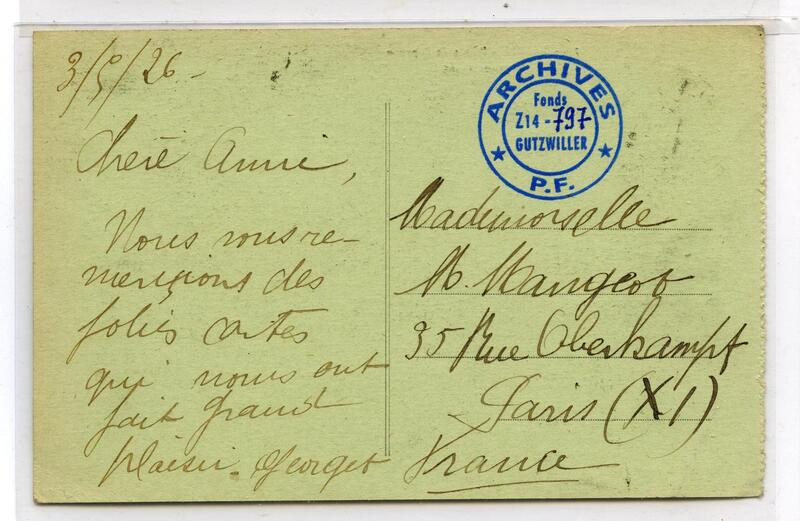 3/5/26 -
Chère Anne,
Nous vous re-
mercions des
jolies cartes
qui nous ont
fait grand
plaisir. Georges
ARCHIVES
Fonds
Z14 - 797
GUTZWILLER
P.F.
Mademoiselle
M. Mangeot
35 Rue Oberkampf
Paris (XI)
France